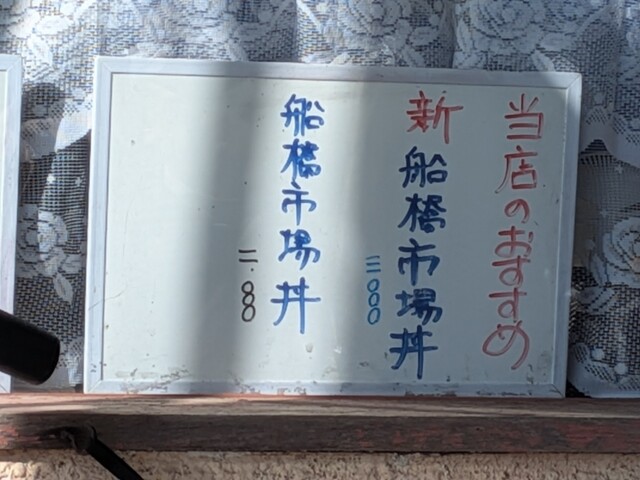 当店のおすすめ
新船橋市場丼
三〇〇〇
船橋市場丼
二.〇〇〇